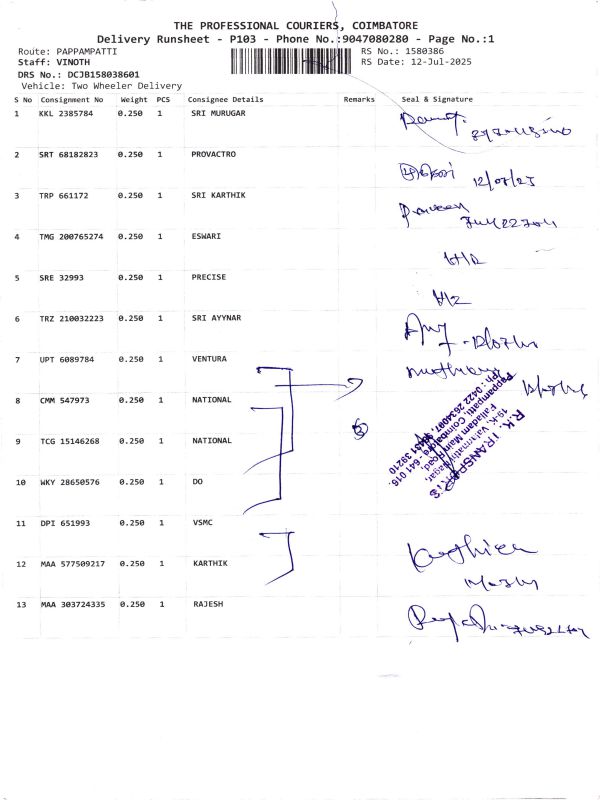 THE PROFESSIONAL COURIERS, COIMBATORE
Delivery Runsheet - P103 - Phone No.:9047080280 - Page No.:1
Route: PAPPAMPATTI
RS No.: 1580386
Staff: VINOTH
RS Date: 12-Jul-2025
DRS No.: DCJB158038601
Vehicle: Two Wheeler Delivery
S No Consignment No Weight PCS Consignee Details Remarks Seal & Signature
1 KKL 2385784 0.250 1 SRI MURUGAR
2 SRT 68182823 0.250 1 PROVACTRO
12/07/25
3 TRP 661172 0.250 1 SRI KARTHIK
Praveen
4 TMG 200765274 0.250 1 ESWARI
5 SRE 32993 0.250 1 PRECISE
6 TRZ 210032223 0.250 1 SRI AYYNAR
7 UPT 6089784 0.250 1 VENTURA
8 CMM 547973 0.250 1 NATIONAL
9 TCG 15146268 0.250 1 NATIONAL
R.K. TRANSPORTS
19-K, Varmathi Nagar,
Palladam Main Road,
Pappampatti, Coimbatore - 641 016.
Ph : 0422 2634097,
10 WKY 28650576 0.250 1 DO
11 DPI 651993 0.250 1 VSMC
12 MAA 577509217 0.250 1 KARTHIK
Karthica
13 MAA 303724335 0.250 1 RAJESH